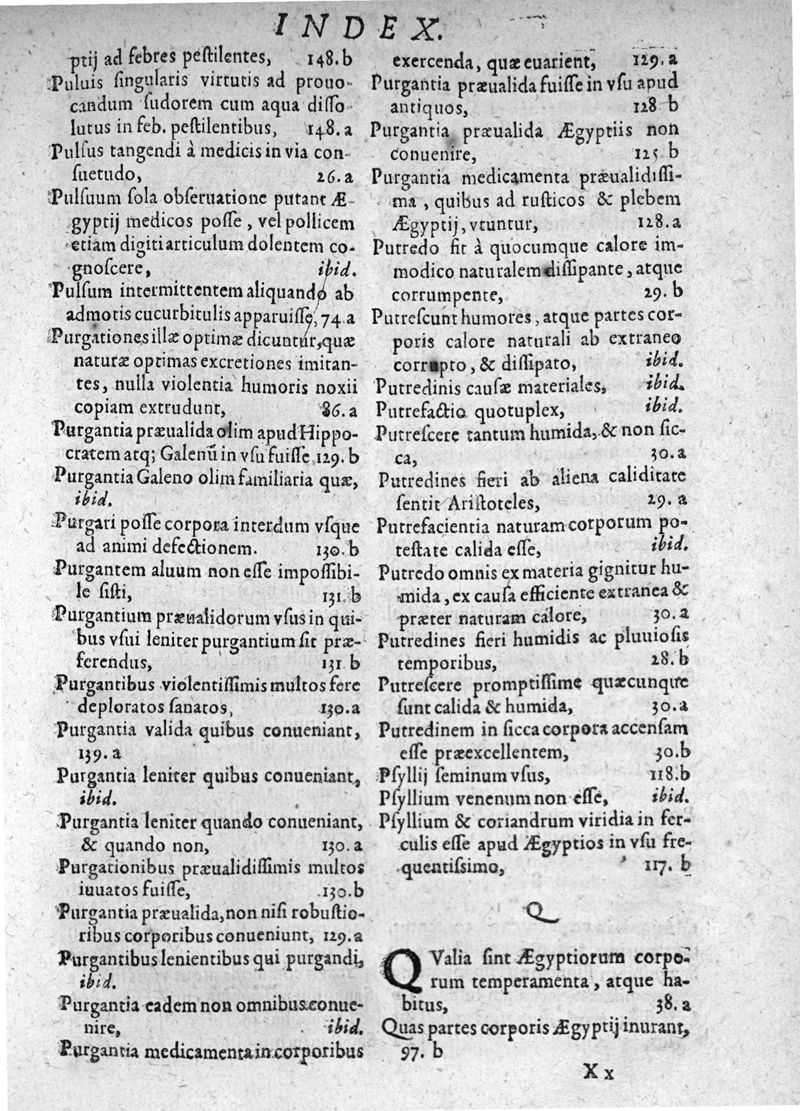 INDEX.
ptij ad febres peſtilentes, 148.b
Puluis ſingularis virtutis ad prouo-
candum ſudorem cum aqua diſſo
lutus in feb. peſtilentibus, 148.a
Pulſus tangendi à medicis in via con-
ſuetudo, 26.a
Pulſuum ſola obſeruatione putant Æ-
gyptij medicos poſſe, vel pollicem
etiam digiti articulum dolentem co-
gnoſcere, ibid.
Pulſum intermittentem aliquando ab
admotis cucurbitulis apparuiſſe, 74.a
Purgationes illæ optimæ dicuntur, quæ
naturæ optimas excretiones imitan-
tes, nulla violentia humoris noxii
copiam extrudunt, 86.a
Purgantia præualida olim apud Hippo-
cratem atq; Galenū in vſu fuiſſe, 129.b
Purgantia Galeno olim familiaria quæ,
ibid.
Purgari poſſe corpora interdum vſque
ad animi defectionem. 130.b
Purgantem aluum non eſſe impoſſibi-
le ſiſti, 131.b
Purgantium præualidorum vſus in qui-
bus vſui leniter purgantium ſit præ-
ferendus, 131.b
Purgantibus violentiſſimis multos fere
deploratos ſanatos, 130.a
Purgantia valida quibus conueniant,
139.a
Purgantia leniter quibus conueniant,
ibid.
Purgantia leniter quando conueniant,
& quando non, 130.a
Purgationibus præualidiſſimis multos
iuuatos fuiſſe, 130.b
Purgantia præualida, non niſi robuſtio-
ribus corporibus conueniunt, 129.a
Purgantibus lenientibus qui purgandi,
ibid.
Purgantia eadem non omnibus conue-
nire, ibid.
Purgantia medicamenta in corporibus
exercenda, quæ euarient, 129.a
Purgantia præualida fuiſſe in vſu apud
antiquos, 128 b
Purgantia præualida Ægyptiis non
conuenire, 125 b
Purgantia medicamenta præualidiſſi-
ma, quibus ad ruſticos & plebem
Ægyptij, vtuntur, 128.a
Putredo fit à quocumque calore im-
modico naturalem diſſipante, atque
corrumpente, 29. b
Putreſcunt humores, atque partes cor-
poris calore naturali ab extraneo
corrupto, & diſſipato, ibid.
Putredinis cauſæ materiales, ibid.
Putrefactio quotuplex, ibid.
Putreſcere tantum humida, & non ſic-
ca, 30.a
Putredines fieri ab aliena caliditate
ſentit Ariſtoteles, 29. a
Putrefacientia naturam corporum po-
teſtate calida eſſe, ibid.
Putredo omnis ex materia gignitur hu-
mida, ex cauſa efficiente extranea &
præter naturam calore, 30.a
Putredines fieri humidis ac pluuioſis
temporibus, 28.b
Putreſcere promptiſſime quæcunque
ſunt calida & humida, 30.a
Putredinem in ſicca corpora accenſam
eſſe præexcellentem, 30.b
Pſyllij ſeminum vſus, 118.b
Pſyllium venenum non eſſe, ibid.
Pſyllium & coriandrum viridia in fer-
culis eſſe apud Ægyptios in vſu fre-
quentiſſimo, 117. b
Q
QValia ſint Ægyptiorum corpo-
rum temperamenta, atque ha-
bitus, 38.a
Quas partes corporis Ægyptij inurant,
97. b
Xx